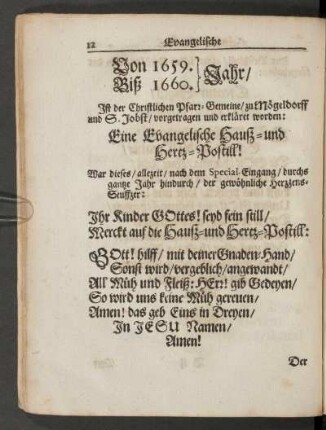 12 Evangelische
Von 1659. } Jahr/
Biß 1660.
Ist der Christlichen Pfarr-Gemeine/ zu Mögeldorff
und S. Jobst/ vorgetragen und erkläret worden:
Eine Evangelische Hauß- und
Hertz-Postill!
War dieses/ allezeit/ nach dem Special-Eingang/ durchs
gantze Jahr hindurch/ der gewöhnliche Hertzens-
Seuffzer:
Ihr Kinder GOttes! seyd fein still/
Merckt auf die Hauß- und Hertz-Postill:
GOtt! hilff/ mit deiner Gnaden-Hand/
Sonst wird/ vergeblich/ angewandt/
All' Müh und Fleiß: HErr! gib Gedeyen/
So wird uns keine Müh gereuen/
Amen! das geb Eins in Dreyen/
In JESU Namen/
Amen!
Der